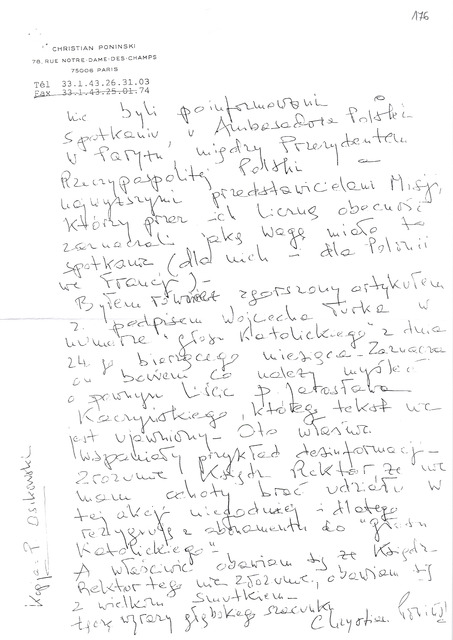 176
CHRISTIAN PONINSKI
78, RUE NOTRE-DAME-DES-CHAMPS
75006 PARIS
Tél 33.1.43.26.31.03
Fax 33.1.43.25.01.74
nie byli poinformowani
spotkaniu, w Ambasadzie Polskiej
w Paryżu, między Prezydentem
Rzeczypospolitej Polski a
najwyższymi przedstawicielami Misji,
którzy przez ich liczną obecność
zaznaczali jaką wagę miało to
spotkanie (dla nich - dla Polonii
we Francji).-
Byłem również zgorszony artykułem
z podpisem Wojciecha Turka w
numerze "Głosu Katolickiego" z dnia
24 go bieżącego miesiąca. Zaznacza
on bowiem co należy myśleć
o pewnym liście p. Jarosława
Kaczyńskiego, którego tekst nie
jest ujawniony - Oto właśnie
wspaniały przykład desinformacji -
Zrozumie Ksiądz Rektor że nie
mam ochoty brać udziału w
tej akcji niegodnej i dlatego
rezygnuję z abonamentu do "Głosu
Katolickiego" -
A właściwie obawiam się że Ksiądz
Rektor tego nie zrozumie, obawiam się
z wielkim smutkiem -
łączę wyrazy głębokego szacunku
Christian Poniński
Kopja: P. Osikowski